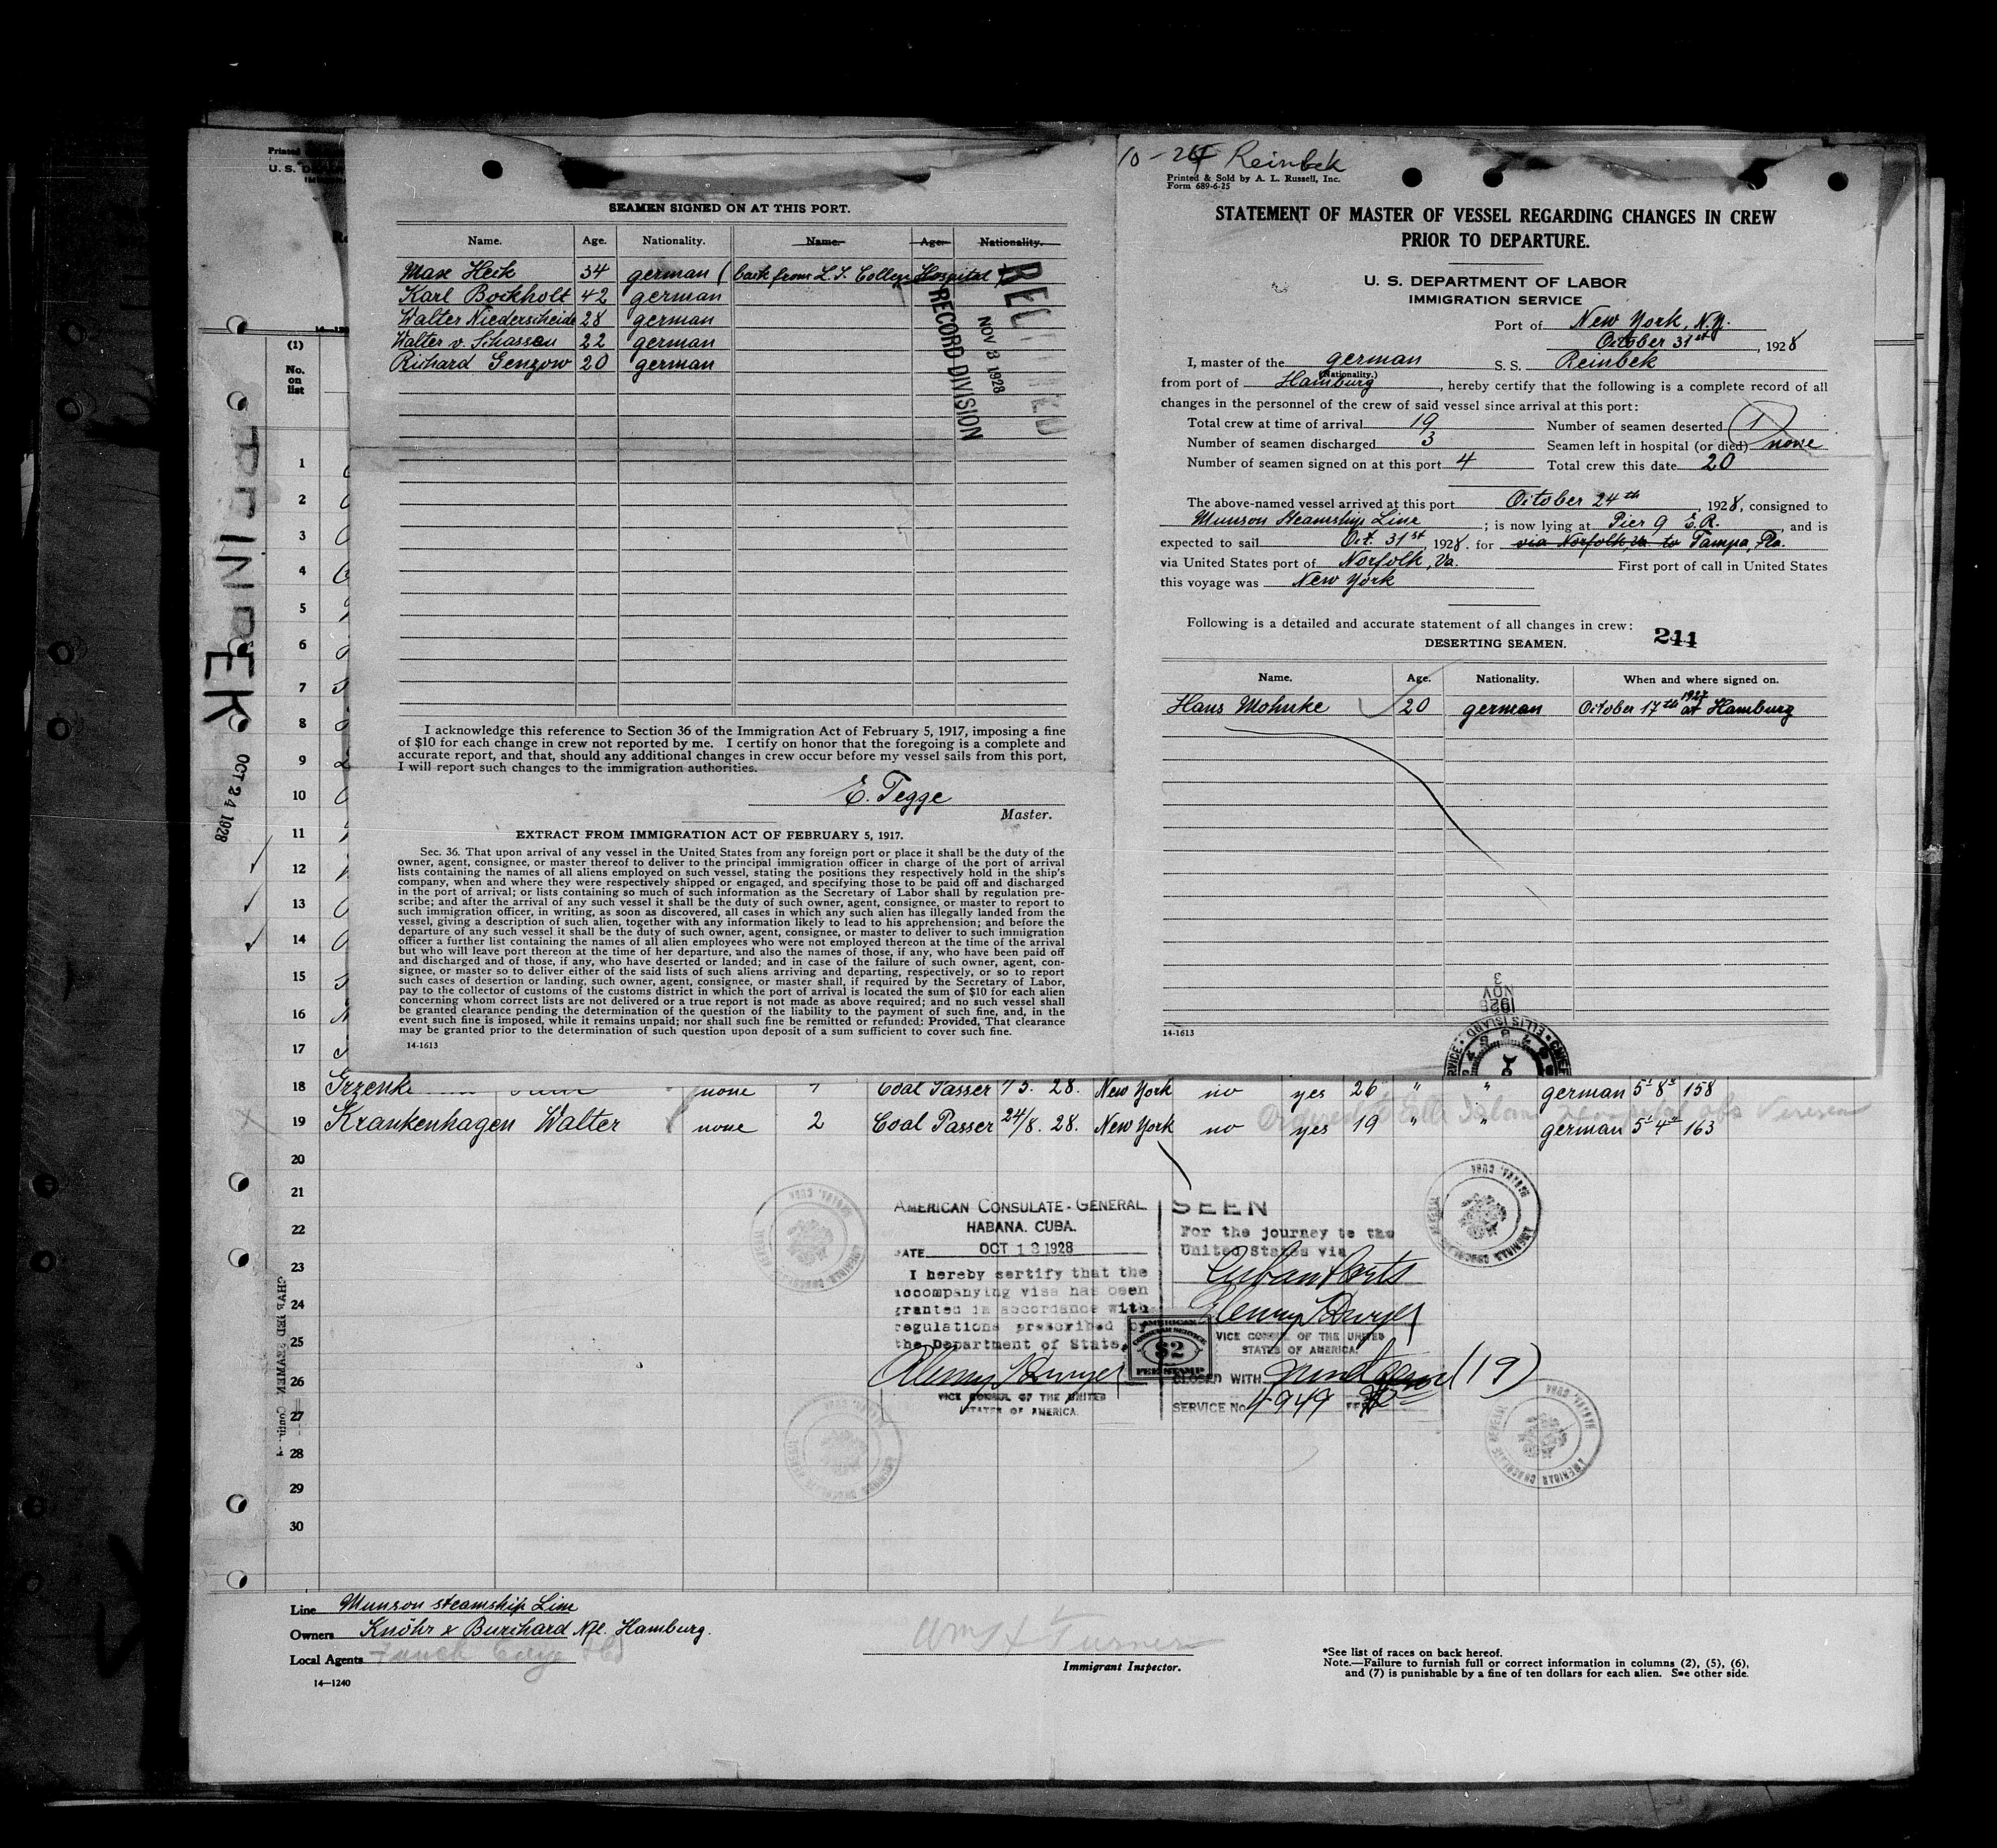 SEAMEN SIGNED ON AT THIS PORT.
Name. Age. Nationality. Name. Age. Nationality.
Max Heck 34 german (back from L.I. College Hospital)
Karl Bockholt 42 german
Walter Niederscheide 28 german
Walter v. Schassen 22 german
Richard Genzow 20 german
RECORD DIVISION
NOV 3 1928
I acknowledge this reference to Section 36 of the Immigration Act of February 5, 1917, imposing a fine
of $10 for each change in crew not reported by me. I certify on honor that the foregoing is a complete and
accurate report, and that, should any additional changes in crew occur before my vessel sails from this port,
I will report such changes to the immigration authorities.
E. Tegge
Master.
EXTRACT FROM IMMIGRATION ACT OF FEBRUARY 5, 1917.
Sec. 36. That upon arrival of any vessel in the United States from any foreign port or place it shall be the duty of the
owner, agent, consignee, or master thereof to deliver to the principal immigration officer in charge of the port of arrival
lists containing the names of all aliens employed on such vessel, stating the positions they respectively hold in the ship's
company, when and where they were respectively shipped or engaged, and specifying those to be paid off and discharged
in the port of arrival; or lists containing so much of such information as the Secretary of Labor shall by regulation pre-
scribe; and after the arrival of any such vessel it shall be the duty of such owner, agent, consignee, or master to report to
such immigration officer, in writing, as soon as discovered, all cases in which any such alien has illegally landed from the
vessel, giving a description of such alien, together with any information likely to lead to his apprehension; and before the
departure of any such vessel it shall be the duty of such owner, agent, consignee, or master to deliver to such immigration
officer a further list containing the names of all alien employees who were not employed thereon at the time of the arrival
but who will leave port thereon at the time of her departure, and also the names of those, if any, who have been paid off
and discharged and of those, if any, who have deserted or landed; and in case of the failure of such owner, agent, con-
signee, or master so to deliver either of the said lists of such aliens arriving and departing, respectively, or so to report
such cases of desertion or landing, such owner, agent, consignee, or master shall, if required by the Secretary of Labor,
pay to the collector of customs of the customs district in which the port of arrival is located the sum of $10 for each alien
concerning whom correct lists are not delivered or a true report is not made as above required; and no such vessel shall
be granted clearance pending the determination of the question of the liability to the payment of such fine, and, in the
event such fine is imposed, while it remains unpaid; nor shall such fine be remitted or refunded: Provided, That clearance
may be granted prior to the determination of such question upon deposit of a sum sufficient to cover such fine.
14-1613
10-24 Reinbek
Printed & Sold by A. L. Russell, Inc.
Form 689-6-25
STATEMENT OF MASTER OF VESSEL REGARDING CHANGES IN CREW
PRIOR TO DEPARTURE.
U. S. DEPARTMENT OF LABOR
IMMIGRATION SERVICE
Port of New York, N.Y.
October 31st, 1928
I, master of the german S. S. Reinbek
(Nationality.)
from port of Hamburg, hereby certify that the following is a complete record of all
changes in the personnel of the crew of said vessel since arrival at this port:
Total crew at time of arrival 19 Number of seamen deserted 1
Number of seamen discharged 3 Seamen left in hospital (or died) none
Number of seamen signed on at this port 4 Total crew this date 20
The above-named vessel arrived at this port October 24th, 1928, consigned to
Munson Steamship Line; is now lying at Pier 9 E.R., and is
expected to sail Oct. 31st, 1928. for via Norfolk, Va. to Tampa, Fla.
via United States port of Norfolk, Va. First port of call in United States
this voyage was New York
Following is a detailed and accurate statement of all changes in crew:
DESERTING SEAMEN. 244
Name. Age. Nationality. When and where signed on.
Hans Mohnke 20 german October 17th 1927 at Hamburg
NOV 3 1928
ELLIS ISLAND
14-1613
Printed
U. S. D
(1)
No.
on
list
1
2
3
4
5
6
7
8
9
10
11
12
13
14
15
16
17
REINBEK
OCT 24 1928
18 Grzenk none 1 Coal Passer 75. 28. New York no yes 26 " " german 5' 8" 158
19 Krankenhagen Walter none 2 Coal Passer 24/8. 28. New York no yes 19 " " german 5' 4" 163
20
21
22
23
24
25
26
27
28
29
30
AMERICAN CONSULATE-GENERAL
HABANA, CUBA.
DATE OCT 13 1928
I hereby certify that the
accompanying visa has been
granted in accordance with
regulations prescribed by
the Department of State.
VICE CONSUL OF THE UNITED
STATES OF AMERICA.
SEEN
For the journey to the
United States via
Cuban Ports
VICE CONSUL OF THE UNITED
STATES OF AMERICA.
CLOSED WITH nineteen (19)
SERVICE No. 4949 FEE $2
AMERICAN
CONSULAR SERVICE
$2
FEE STAMP
Line Munson steamship Line
Owners Knöhr & Burchard Nfl. Hamburg.
Local Agents
14—1240
Wm H Turner
Immigrant Inspector.
*See list of races on back hereof.
Note.—Failure to furnish full or correct information in columns (2), (5), (6),
and (7) is punishable by a fine of ten dollars for each alien. See other side.